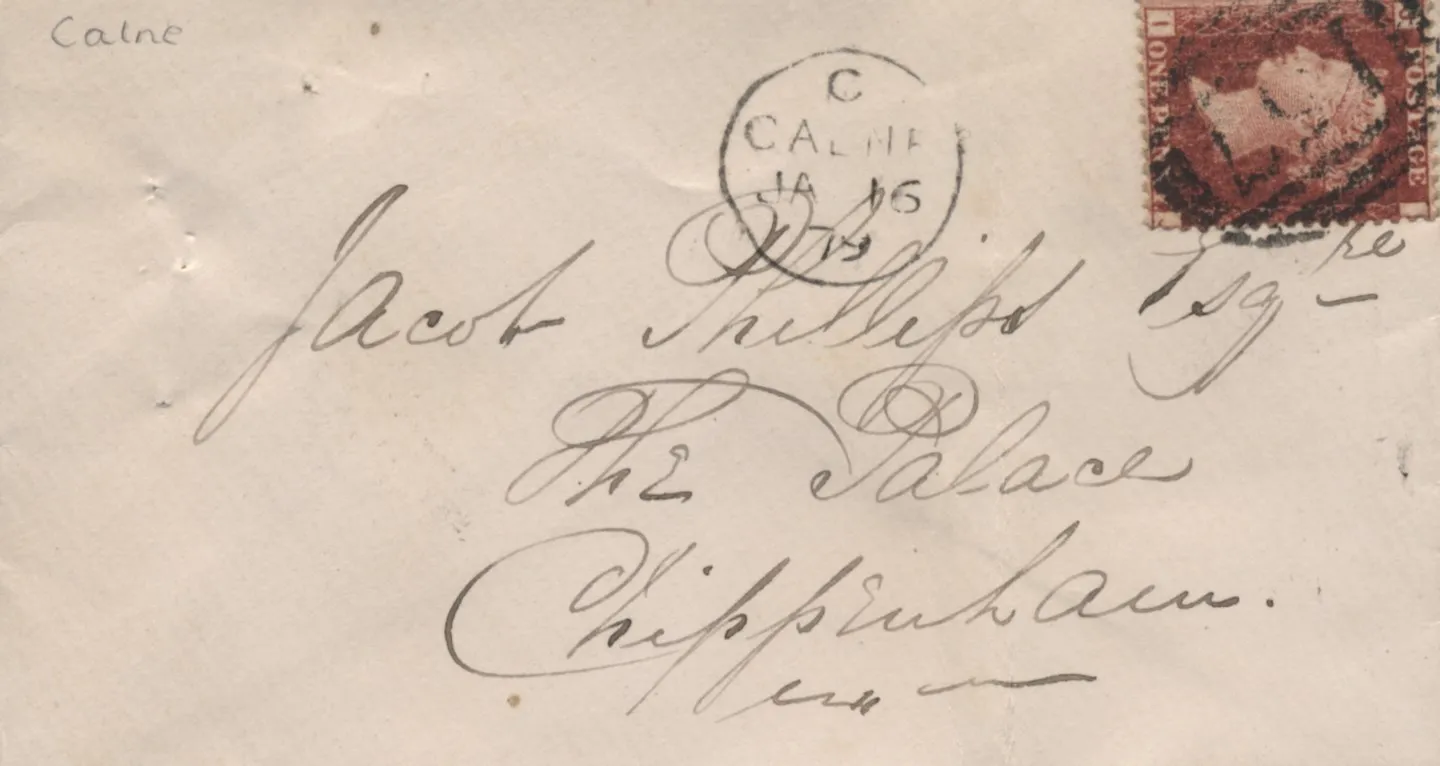 Calne
C
CALNE
JA 16
79
ONE PENNY
POSTAGE
Jacob Phillips Esqre
The Palace
Chippenham.